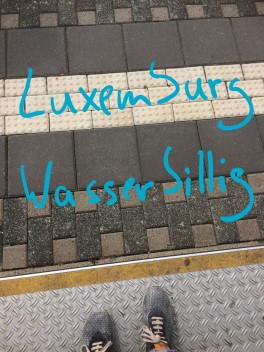 Luxemburg
Wasserbillig